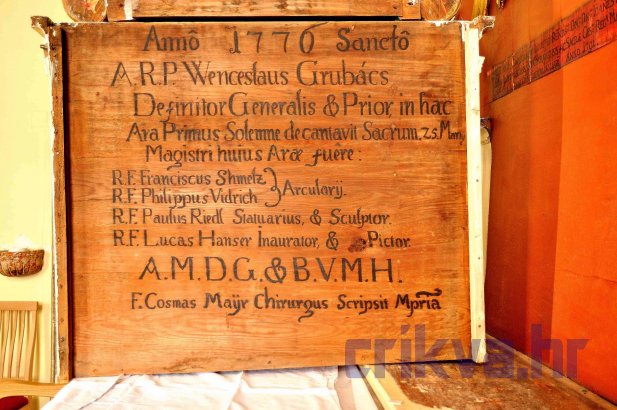 Annô 1776 Sanctô
A.R.P. Wenceslaus Grubács
Definitor Generalis & Prior, in hac
Ara Primus Solemne decantavit Sacrum. 25. Març
Magistri huius Aræ fuêre:
R.F. Franciscus Shmelz
R.F. Philippus Vidrich } Arcularij.
R.F. Paulus Riedl Statuarius, & Sculptor.
R.F. Lucas Hanser Inaurator, & Pictor.
A.M.D.G. & B.V.M.H.
F. Cosmas Maijr Chirurgus Scripsit Mpria
crikva.hr